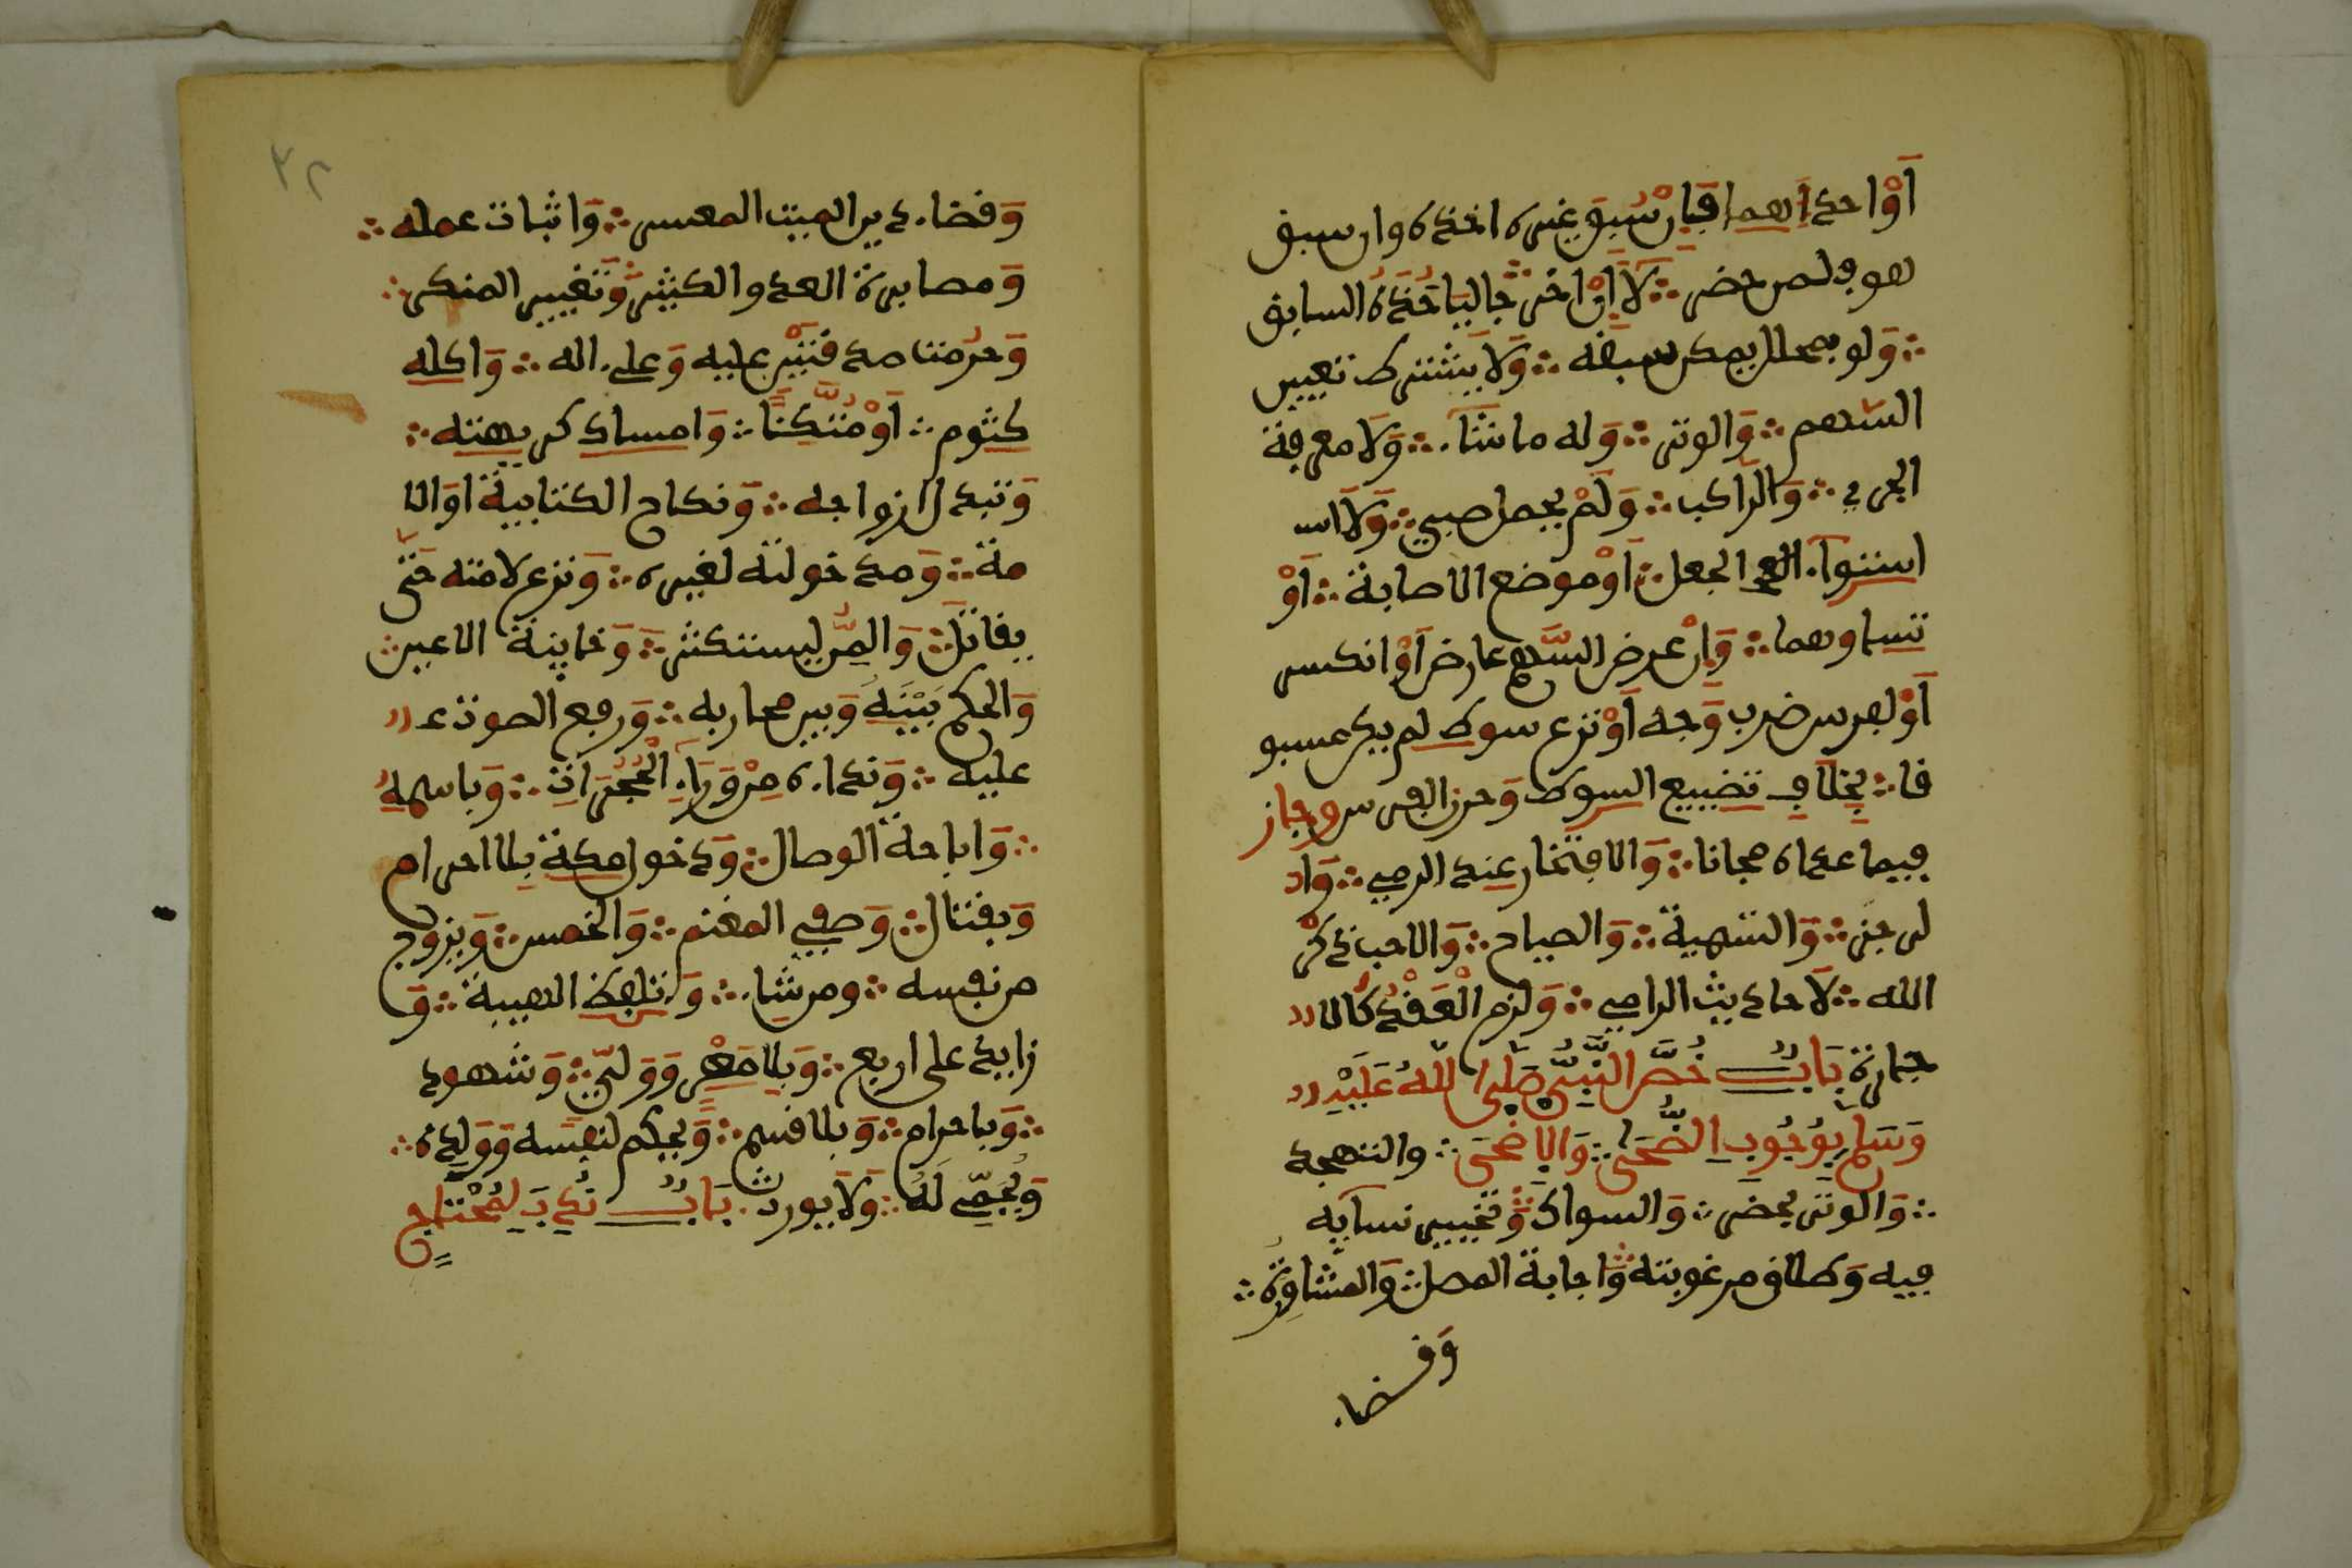 اَوْاحدُاَهما فبإنْ سُبِقَ غيره اخذه وإن سبق
هو فلمن حضر ؞ لَا اِنْ اخرجا ليَاخُذَهُ السابق
؞ وَلو بمحلل يمكن سبقه ؞ وَلَا يشترط تعيين
السّهم ؞ وَالوتر ؞ وَله ما شَآء ؞ وَلَا معرفة
الجري ؞ وَالرّاكب ؞ وَلَمْ يحمل صبي ؞ وَلَا اسـ
استوآء الجعل ؞ اَوْ موضع الاصابة ؞ اَوْ
تساوهما ؞ وَاِنْ عرض للسَّهم عارض اَوْ انكسر
اَوْ لفرس ضرب وَجه اَوْ نزع سوط لم يكن مسبو
قا ؞ بِخِلَافِ تضييع السوط وَحرن الفرس وجاز
فيما عداه مجانا ؞ وَالافتخار عند الرمي ؞ وَا
لرجز ؞ وَالتسمية ؞ وَالصياح ؞ وَالاحب ذكرُ
الله ؞ لَا حاديث الرامي ؞ وَلزم الْعَقْدُ كَالا
جارة بَابٌ خُصَّ النَّبِيُّ صَلَّى اللّٰهُ عَلَيْهِ
وَسَلم بِوُجُوبِ الضُّحَى ؞ وَالاضحَى ؞ والتهجد
؞ وَالوتر بحضر ؞ وَالسواك ؞ وَتخيير نسآيه
فيه وَطلاق مرغوبته ؞ وَاجابة المصل ؞ وَالمشاورة ؞
وَقضا.
٣٢
وَقضا. دين الميت المعسر ؞ وَاثبات عمله ؞
وَمصابرة العدو الكثير ؞ وَتغيير المنكر ؞
وَحُرمتا مدقتين عليه وَعلى. اله ؞ وَاكله
كثوم ؞ اَوْ مُتَّكِئًا ؞ وَامساك كرهته ؞
وَتبدل ازواجه ؞ وَنكاح الكتابية اوَالا
مة ؞ وَمدخولته لغيره ؞ وَنزع لامته حَتى
يقاتل ؞ وَالمَنُّ ليستكثر ؞ وَخاينة الاعين ؞
وَالحكم بَيْنَهُ وَبين محاربه ؞ وَرفع الصوت
عليه ؞ وَندا.ه مِنْ وَرَا.ِ الْحُجُرَاتِ ؞ وَباسمهِ
؞ وَاباحة الوصال ؞ وَدخول مكة بلا احرام
وَبقتال ؞ وَصفي المغنم ؞ وَالخمس ؞ وَيزوج
من نفسه ؞ ومن شا. ؞ وَبلفظ الهبة ؞ وَ
زايد على اربع ؞ وَبلا مَهْرٍ وَوَليّ ؞ وَشهود
؞ وَباحرام ؞ وَبلا قسم ؞ وَيحكم لنفسه وَوَلده ؞
وَيُحَمَّى لَهُ ؞ وَلَا يورث ؞ بَابٌ نُدِبَ لِمُحْتَاجٍ